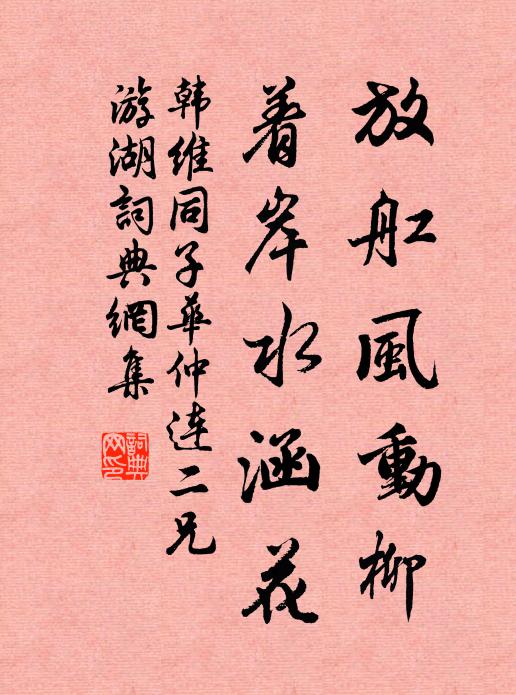 放舡風動柳
着岸水涵花
韩維同子華仲連二兄
游湖詞典網集
詞典網印